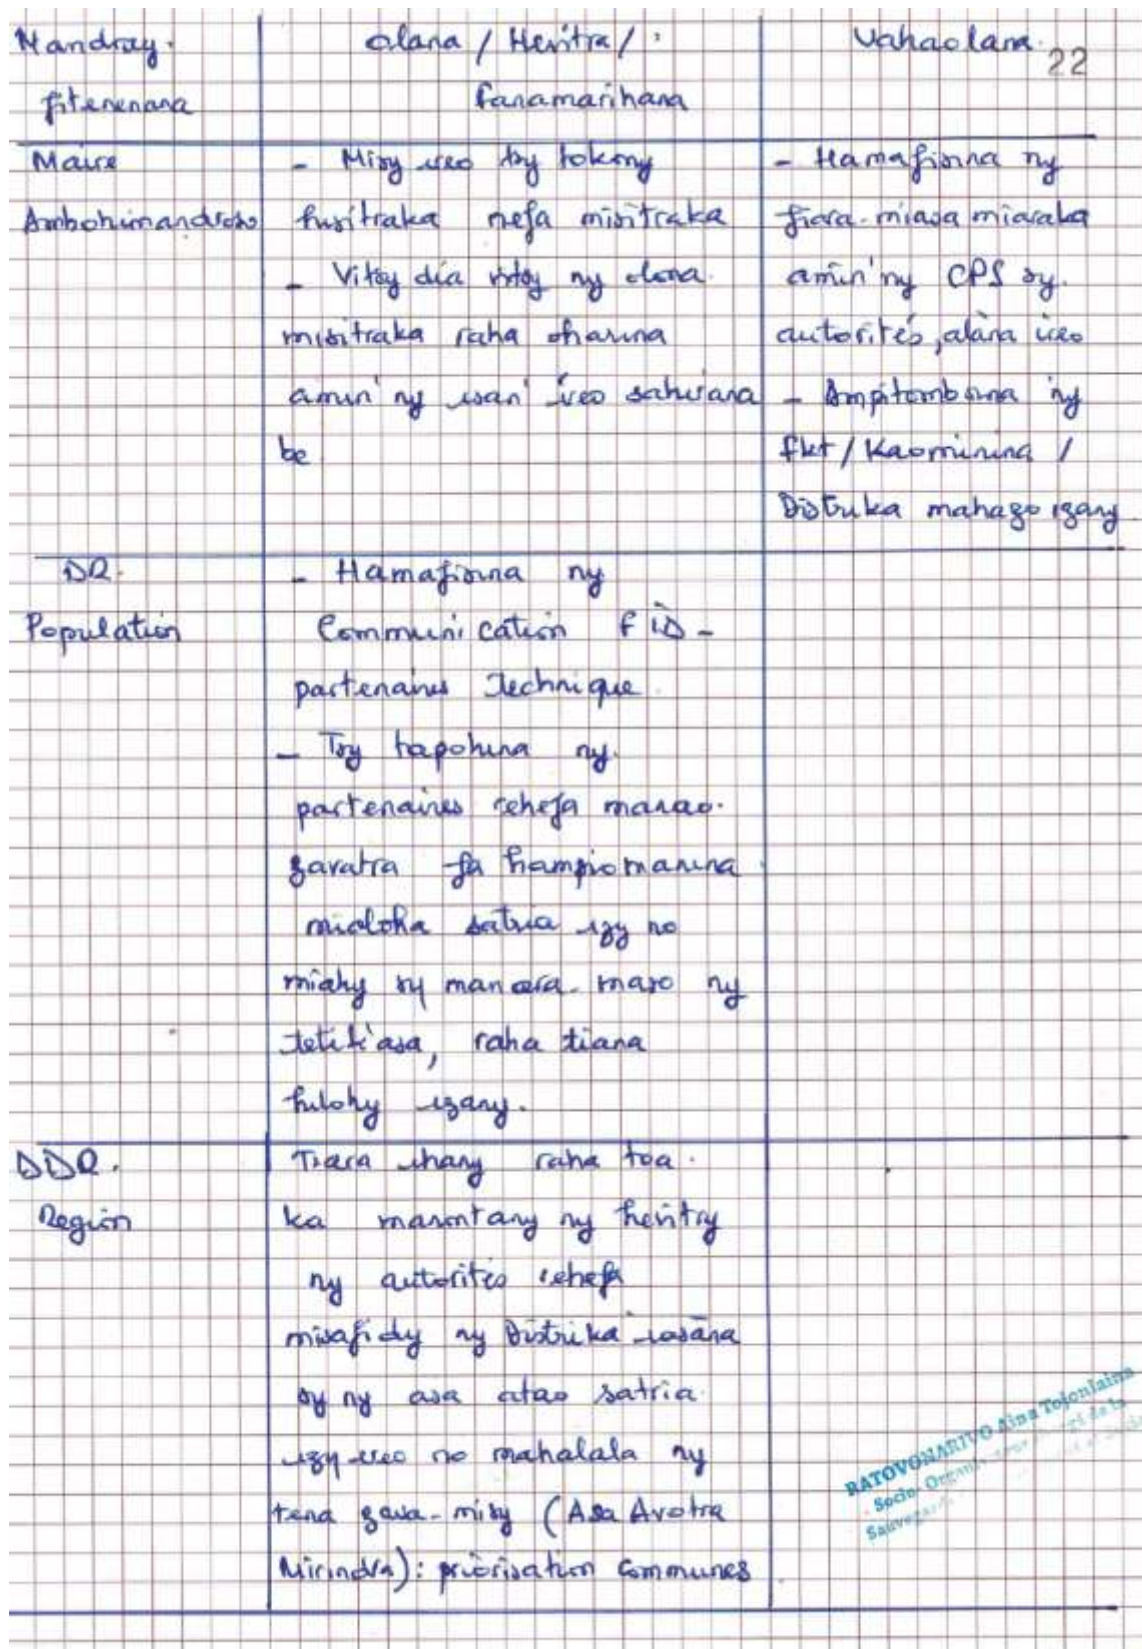 Mandray fitenenana | olana / Hevitra / fanamarihana | Vahaolana
22
Maire Ambohimandroso
- Misy ireo tsy tokony
hisitraka nefa misitraka
- Vitsy dia vitsy ny olona
misitraka raha oharina
amin'ny isan'ireo sahirana
be
- Hamafisina ny
fiara-miasa miaraka
amin'ny CPS sy
autorités, alàna ireo
- Ampitomboina ny
fkt / Kaominina /
Distrika mahazo izany
DR.
Population
- Hamafisina ny
Communication FID -
partenaires technique
- Tsy tapohina ny
partenaires rehefa manao
zavatra fa hampiomanina
mialoha satria izy no
miahy sy manara-maso ny
tetik'asa, raha tiana
hilohy izany.
DDR.
Region
Tiana ihany raha toa
ka manontany ny hevitry
ny autorités rehefa
misafidy ny Distrika iasàna
sy ny asa atao satria
izy ireo no mahalala ny
tena zava-misy (Asa Avotra
Mirindra): priorisation communes
RATOVONARIVO Aina Tojoniaina
Socio